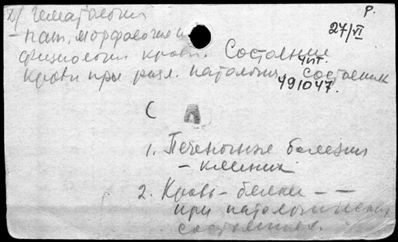 2) Гематология
Р.
27/VI
- пат. морфология и
физиология крови. Состояние
крови при разл. патологич. состояниях
чит.
491047.
С А
1. Печеночные болезни
- клиника
2. Кровь - белки - -
при патологических
состояниях.